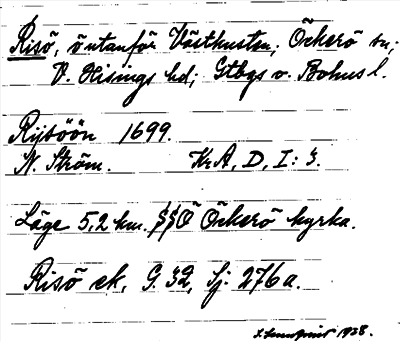 Risö, ö utanför Västkusten; Öckerö sn;
V. Hisings hd; Gtbgs o. Bohus l.
Rijsöön 1699.
N. Ström. KrA, D, I: 3.
Läge 5,2 km. SSÖ Öckerö kyrka.
Risö ek, G. 32, Sj. 276a.
1938.